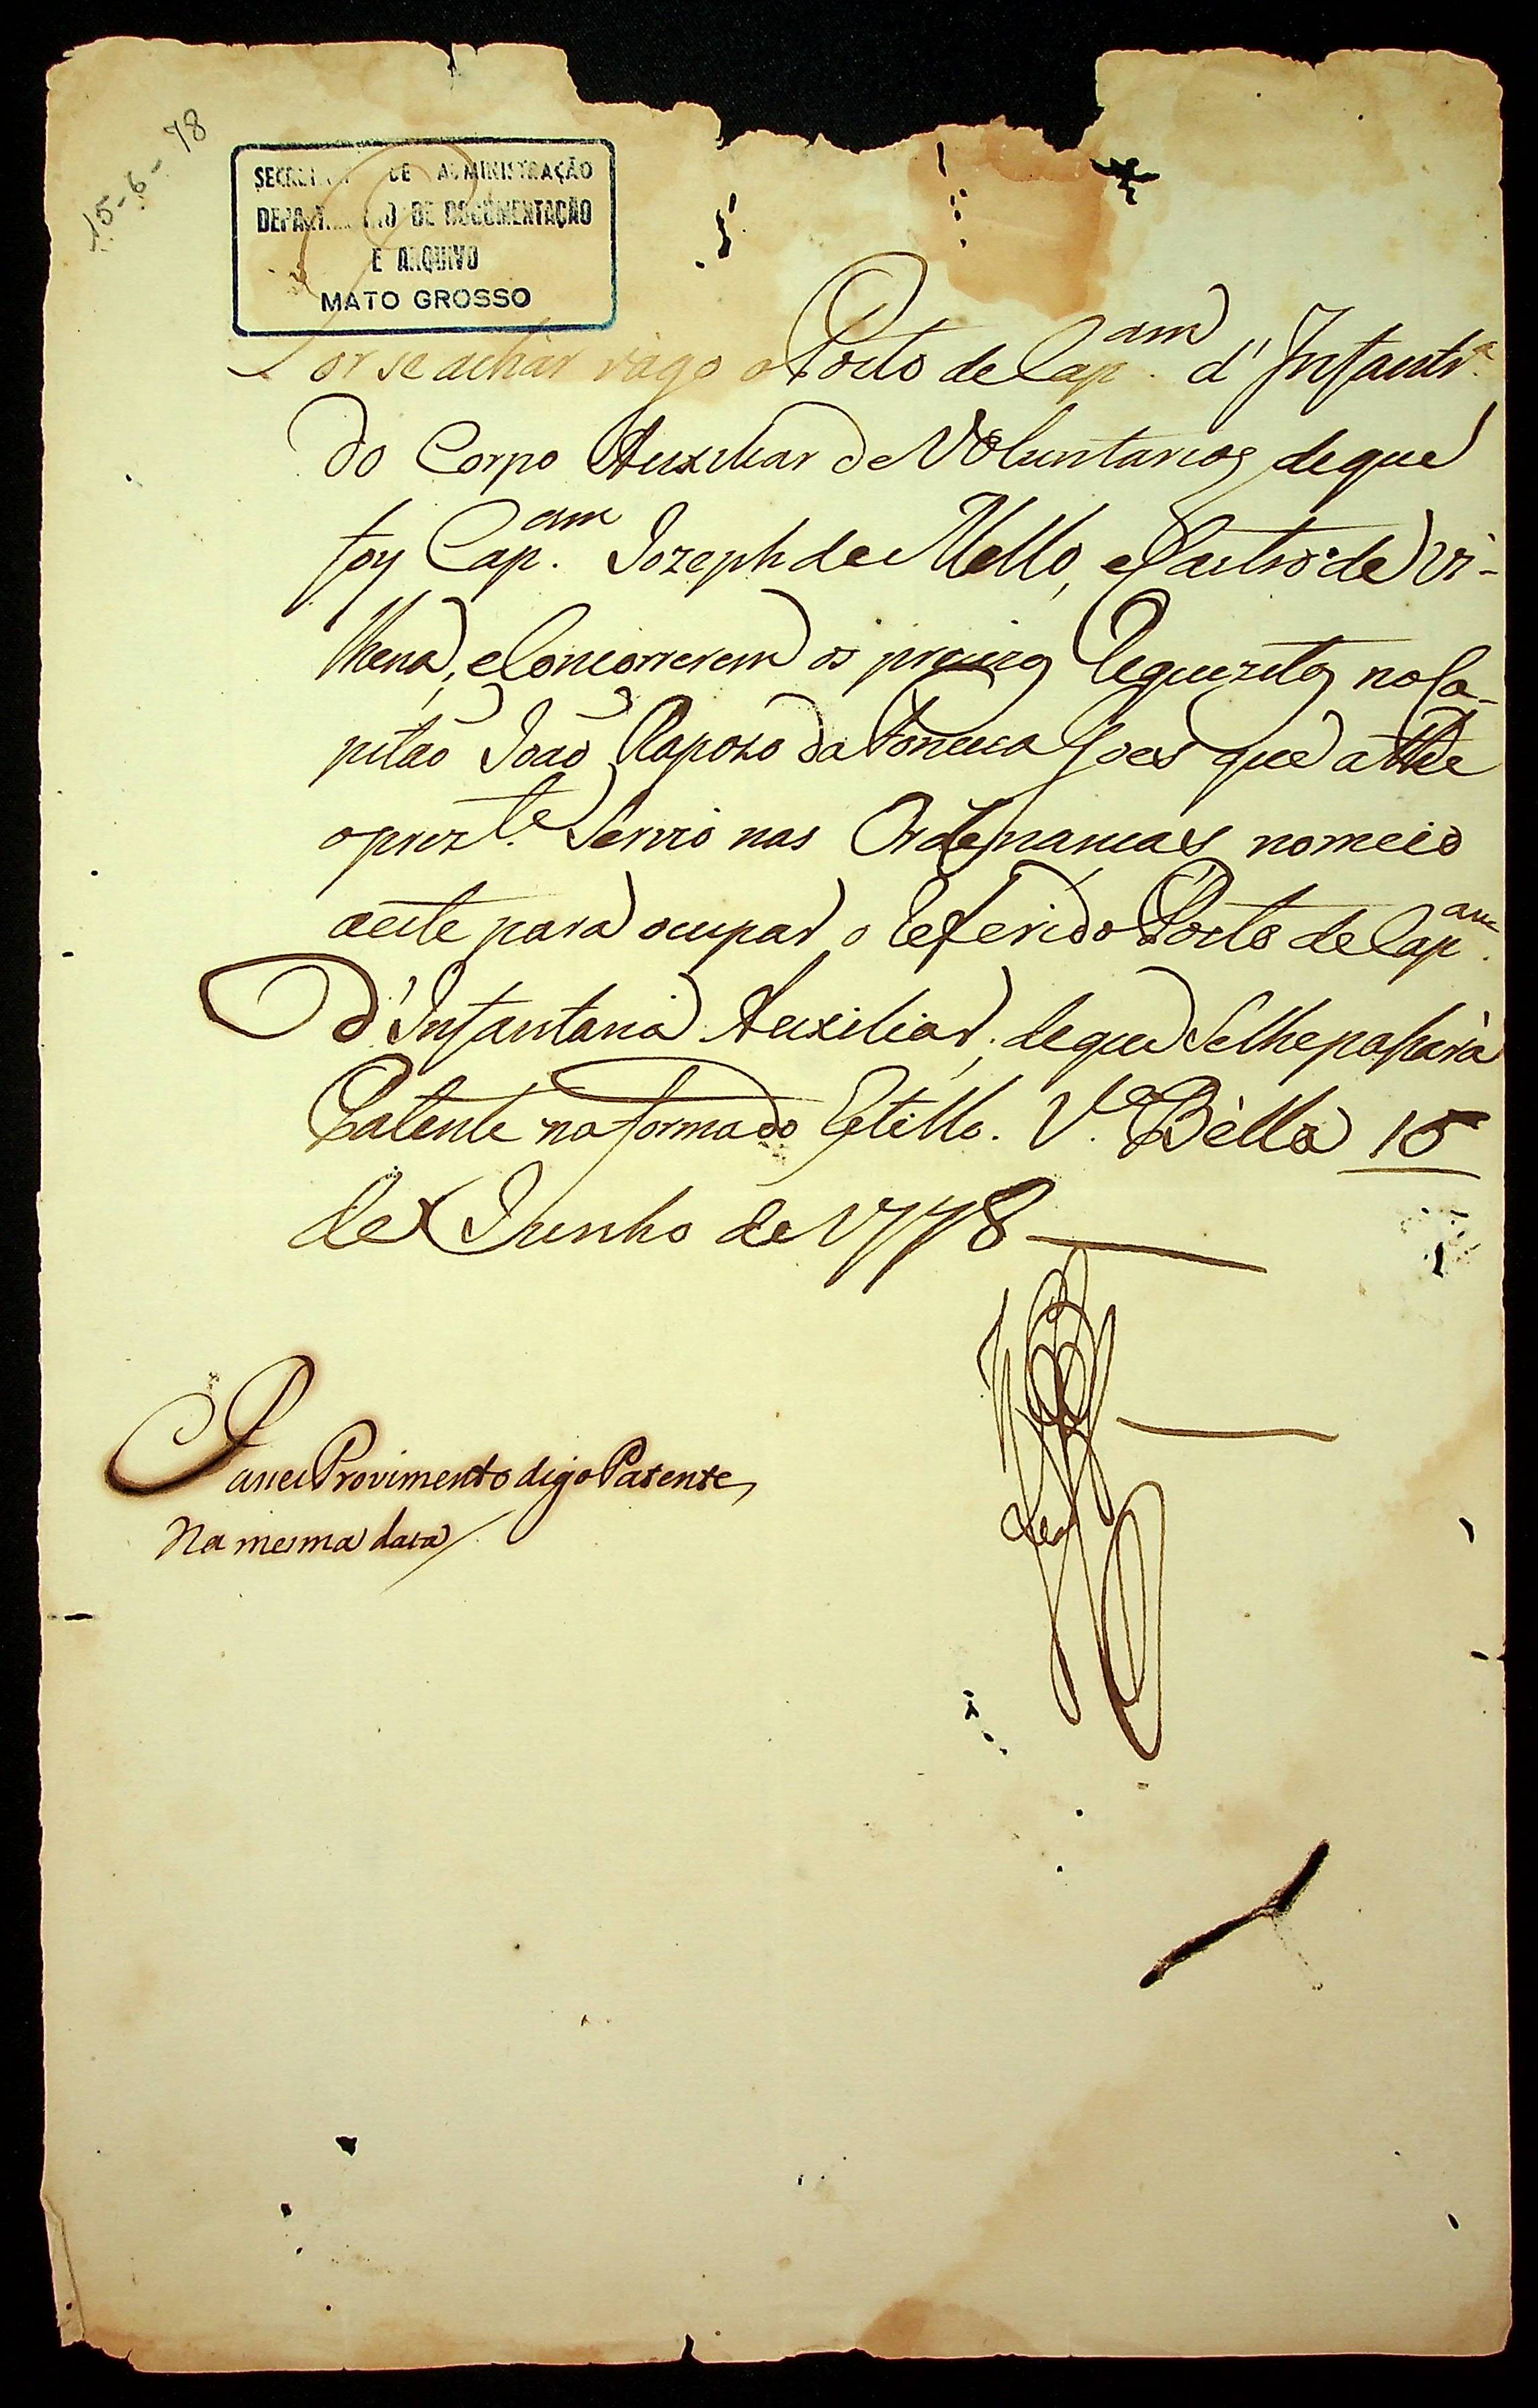 15-6-78
SECRETARIA DE ADMINISTRAÇÃO
DEPARTAMENTO DE DOCUMENTAÇÃO
E ARQUIVO
MATO GROSSO
Por se achar vago o Posto de Cap.am d'Infantr.a
do Corpo Auxiliar de Voluntarios, de que
foy Cap.am Jozeph de Mello, e Castro de Vi-
lhena, e Concorrerem os precizos Requezitos no Ca-
pitão João Raposo da Fonceca Goes que athe
o prez.te Servio nas Ordenancas, nomeio
aeste para ocupar o Referido Posto de Cap.am
d'Infantaria Auxiliar, de que Se lhe passará
Patente na forma do Estillo. V.a Bella 15
de Junho de 1778
Passei Provimento digo Patente
Na mesma data